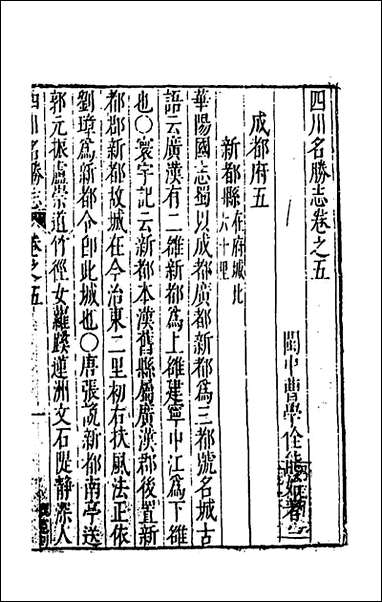 四川名勝志卷之五
閩中曹學佺能始著
成都府五
新都縣在府城北六十里
華陽國志蜀以成都廣都新都爲三都號名城古
語云廣漢有二雒新都爲上雒建寧中江爲下雒
也○寰宇記云新都本漢舊縣屬廣漢郡後置新
都郡新都故城在今治東二里初右扶風法正依
劉璋爲新都令卽此城也○唐張說新都南亭送
郭元振盧崇道竹徑女蘿蹊蓮洲文石隄靜深人
四川名勝志 卷之五